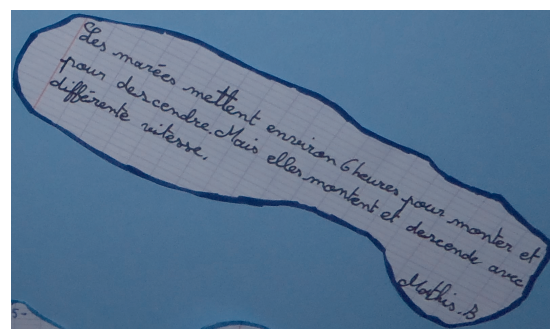 Les marées mettent environ 6 heures pour monter et
pour descendre. Mais elles montent et descende avec
différente vitesse.
Mathis. B